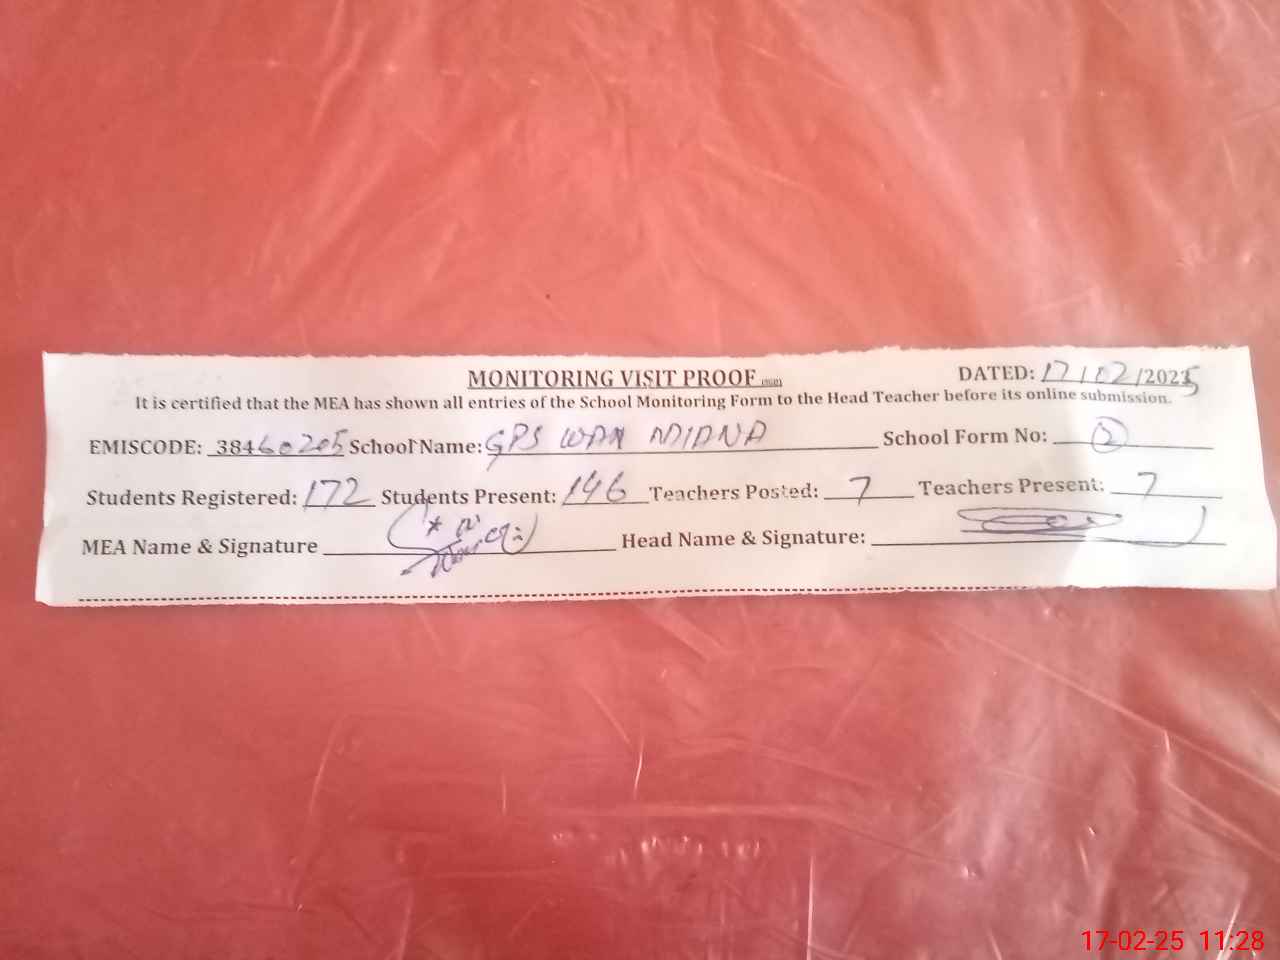 MONITORING VISIT PROOF
DATED: 17/02/2025
It is certified that the MEA has shown all entries of the School Monitoring Form to the Head Teacher before its online submission.
EMISCODE: 38460205 School Name: GPS WAN MIANA School Form No: 2
Students Registered: 172 Students Present: 146 Teachers Posted: 7 Teachers Present: 7
MEA Name & Signature Head Name & Signature:
17-02-25 11:28